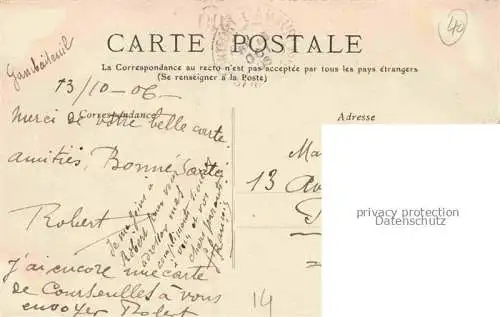 40
CARTE POSTALE
La Correspondance au recto n'est pas acceptée par tous les pays étrangers
(Se renseigner à la Poste)
13/10-06-
Correspondance
Adresse
Merci de votre belle carte.
amitiés, Bonne Santé,
Robert
Je me joins à
Robert pour vous
adresser mes
compliments
à vous et vos
chers parents
François
J'ai encore une carte
de Courseulles à vous
envoyer Robert
Ma
13 Av
P
14
privacy protection
Datenschutz